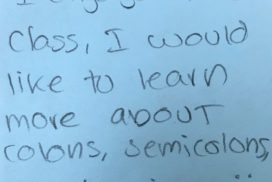 class, I would
like to learn
more about
colons, semicolons,